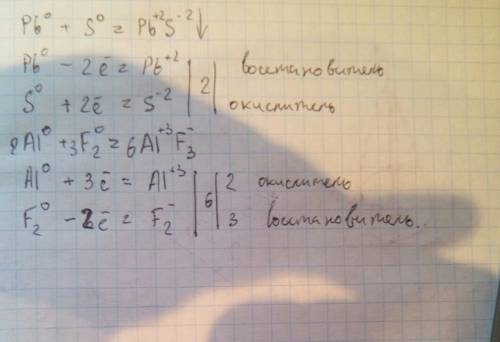 Pb⁰ + S⁰ = Pb⁺²S⁻²↓
Pb⁰ - 2ē = Pb⁺² | 2 | восстановитель
S⁰ + 2ē = S⁻² | | окислитель
2Al⁰ + 3F₂⁰ = 6Al⁺³F₃⁻
Al⁰ + 3ē = Al⁺³ | 6 | 2 окислитель
F₂⁰ - 2ē = F₂⁻ | | 3 восстановитель..